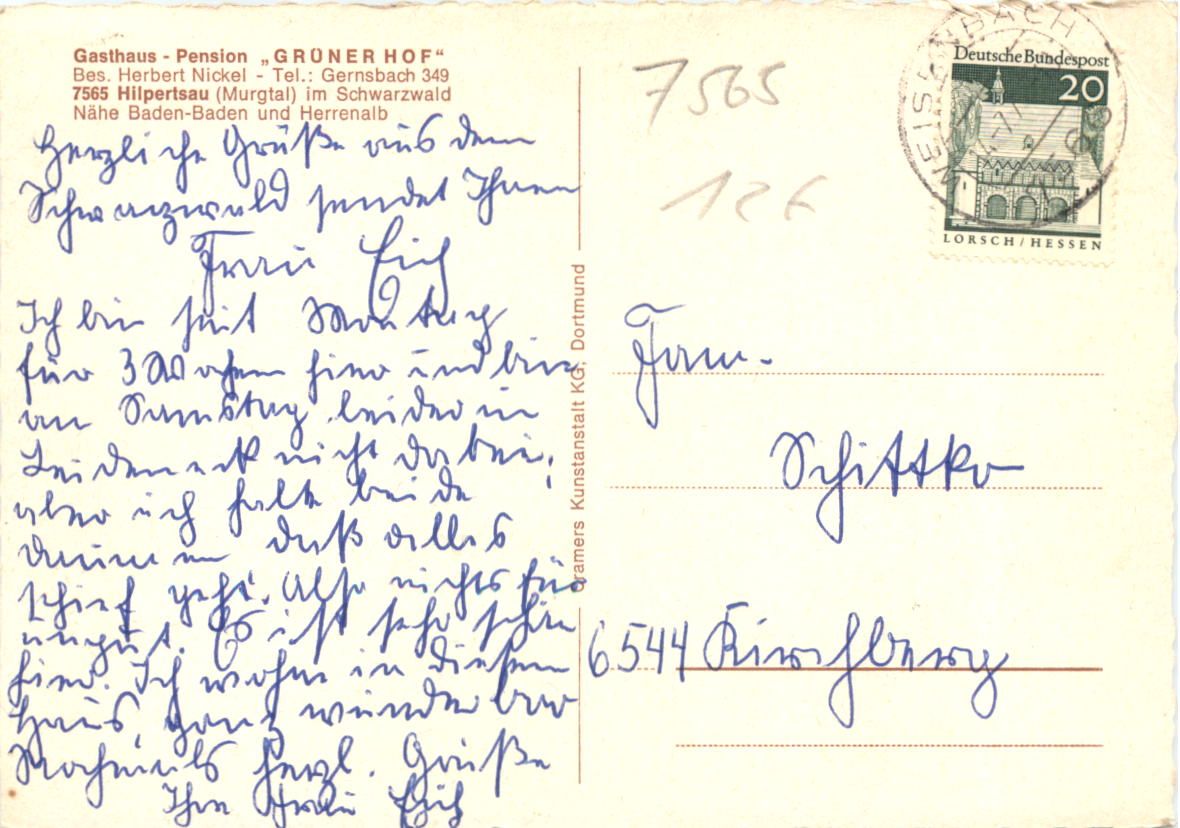 Gasthaus - Pension „GRÜNER HOF“
Bes. Herbert Nickel - Tel.: Gernsbach 349
7565 Hilpertsau (Murgtal) im Schwarzwald
Nähe Baden-Baden und Herrenalb
Herzliche Grüße aus dem
Schwarzwald sendet Ihnen
Frau Eich
Ich bin seit Montag
für 3 Wochen hier und bin
am Samstag leider in
Leideneck nicht dabei,
aber ich halte beide
Daumen daß alles
schief geht. Also nichts für
ungut. Es ist sehr schön
hier. Ich wohne in diesem
Haus, ganz wunderbar
Nochmals herzl. Grüße
Ihre Frau Eich
Cramers Kunstanstalt KG, Dortmund
7565
126
WEISENBACH
Deutsche Bundespost
20
LORSCH/HESSEN
Fam.
Schittko
6544 Kirchberg